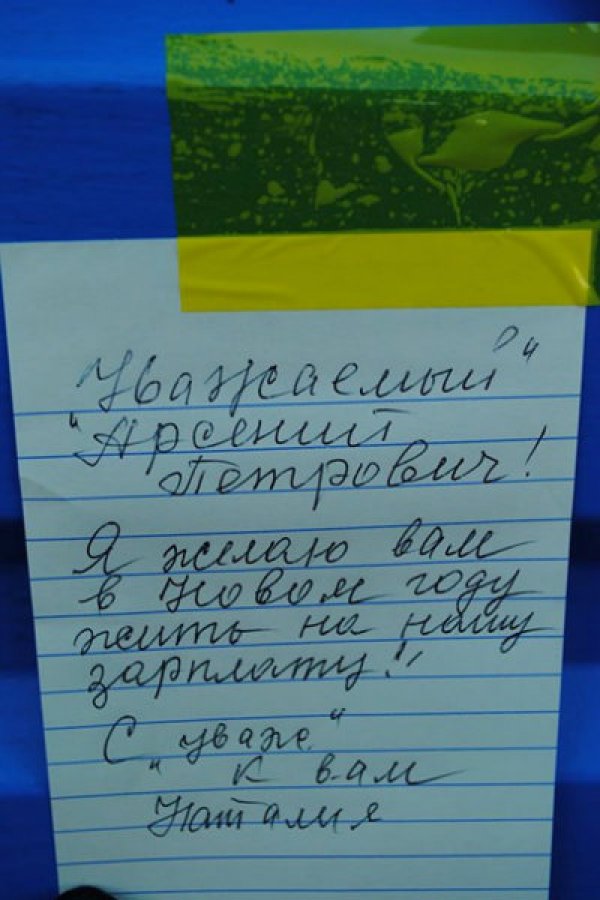 Уважаемый"
"Арсений
Петрович!
Я желаю вам
в Новом году
жить на нашу
зарплату!"
С "уваже"
к вам
Наталия